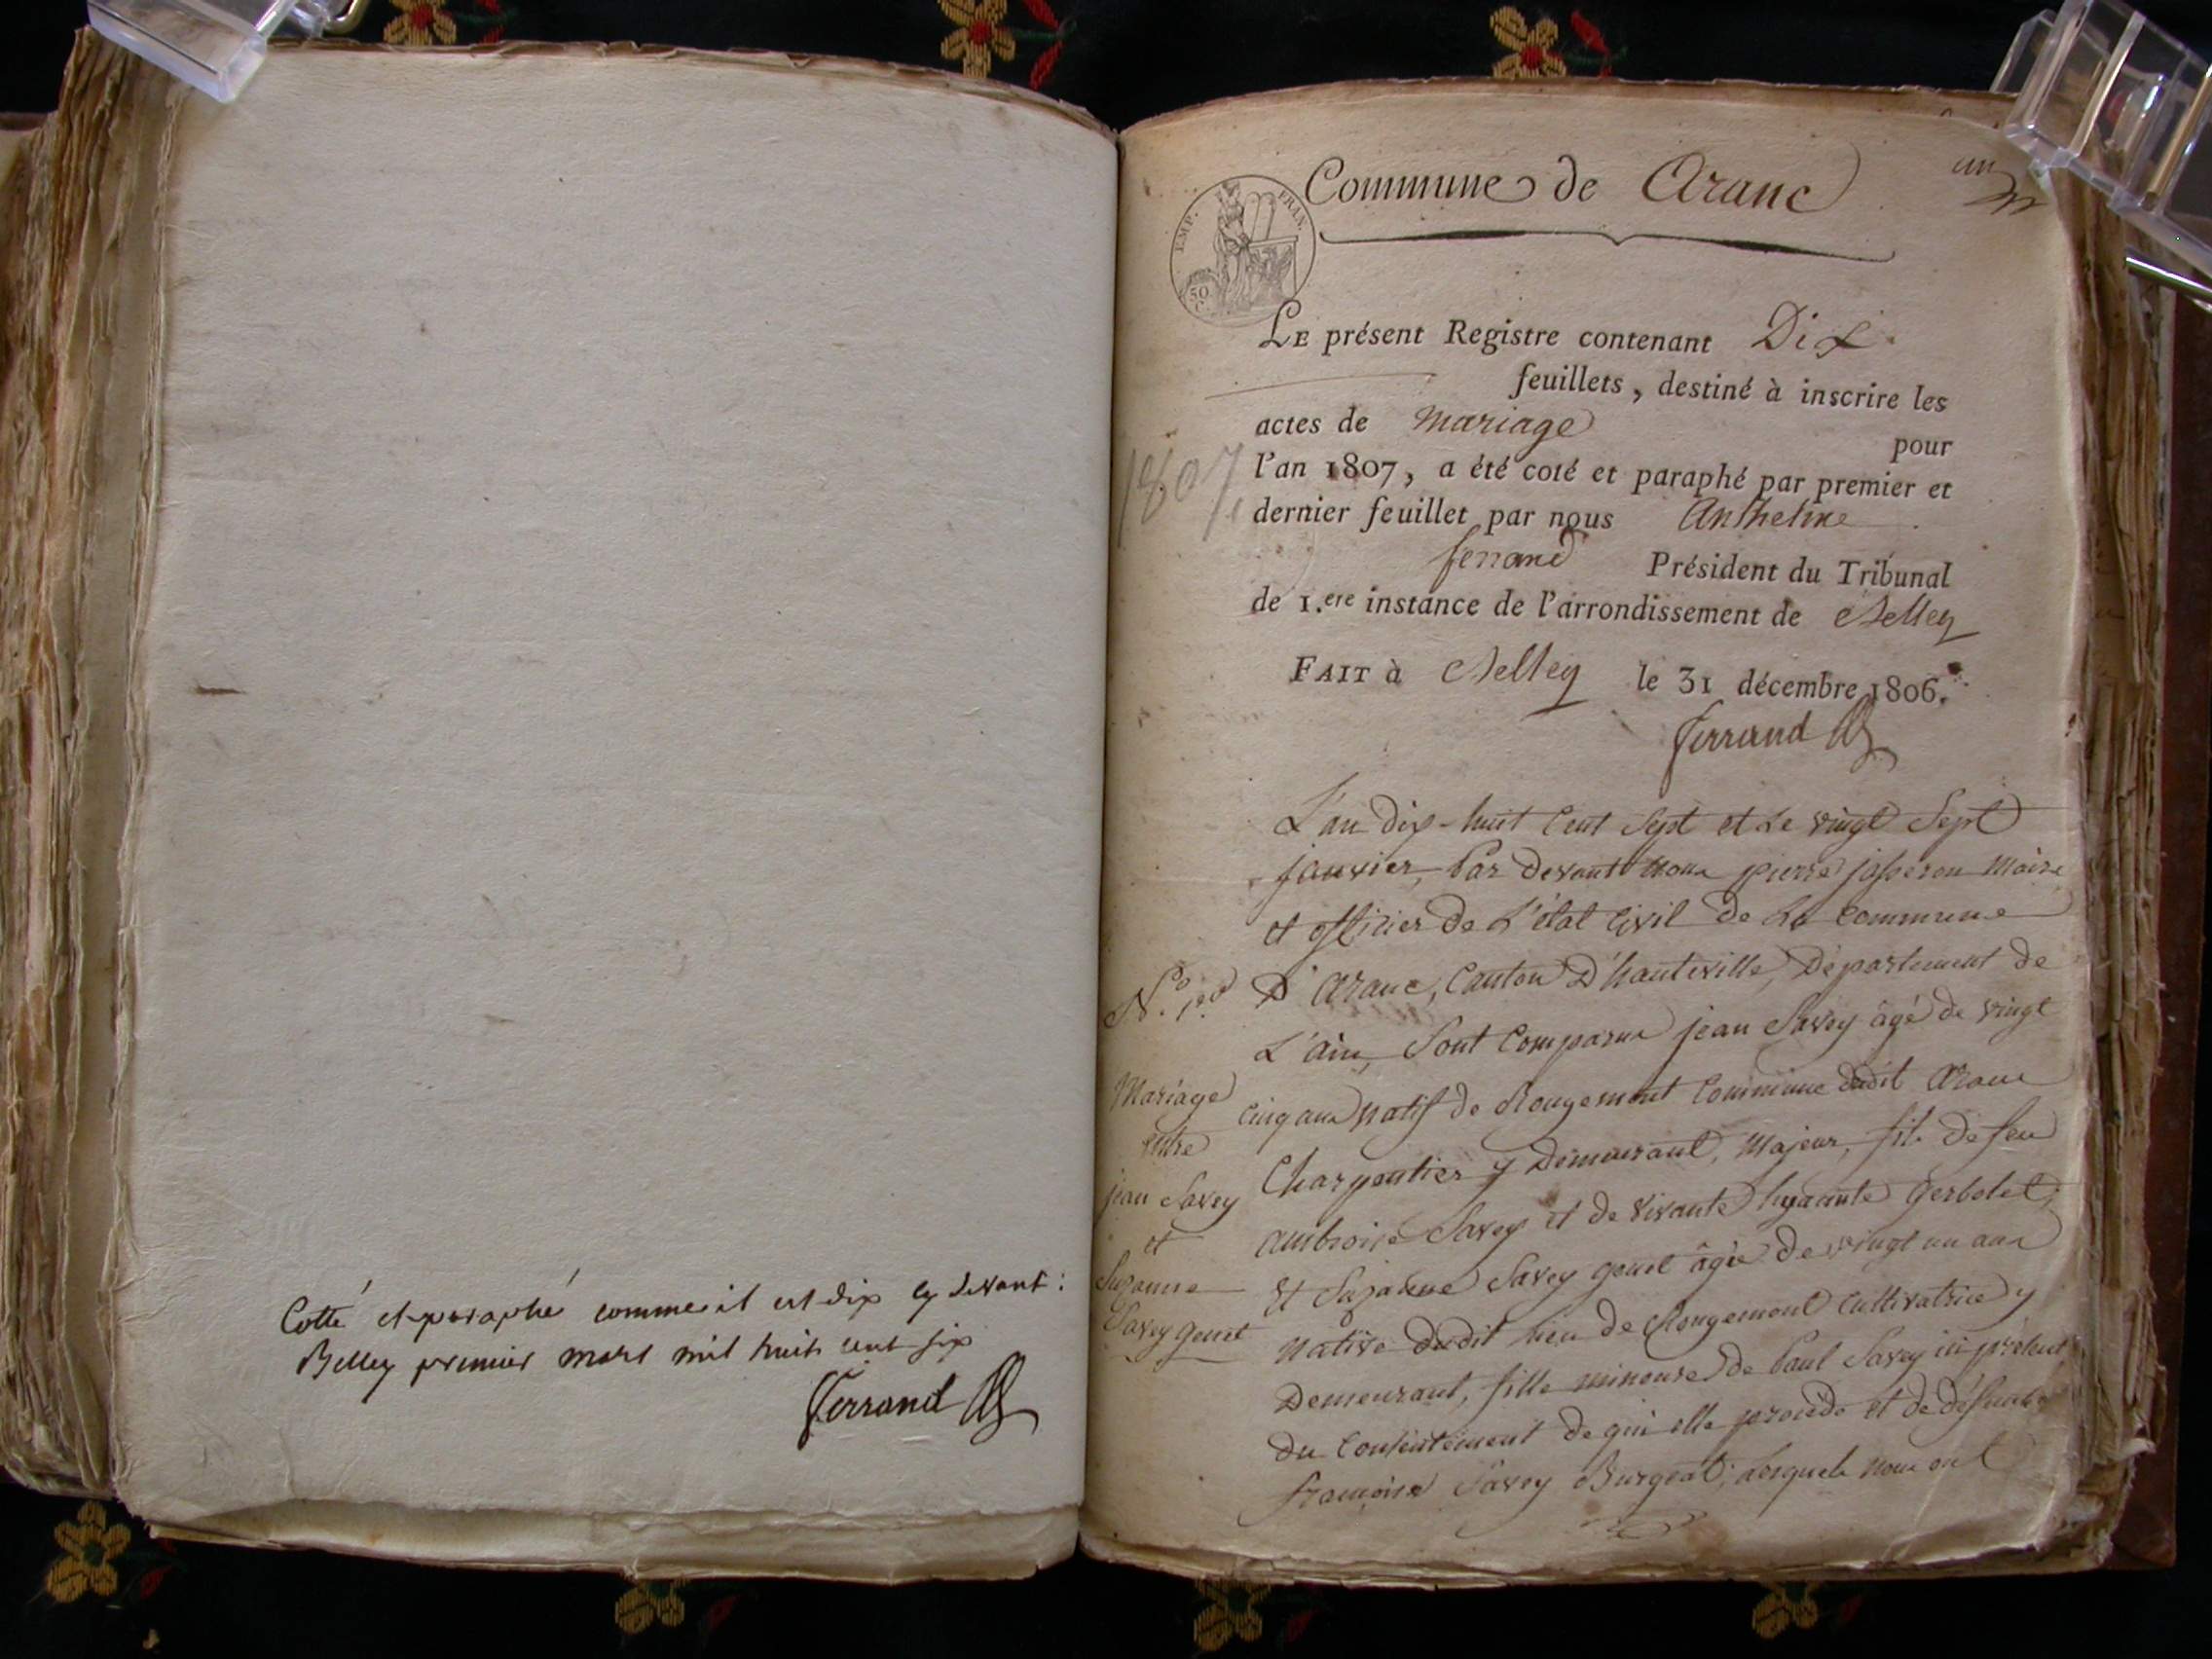 Cotté et paraphé comme il est dix cy devant :
Belley premier mars mil huit cent six
Ferrand
un
Commune de Aranc
EMP. FRAN.
50 C.
LE présent Registre contenant Dix
feuillets, destiné à inscrire les
actes de mariage pour
l'an 1807, a été coté et paraphé par premier et
dernier feuillet par nous Anthelme
ferrand Président du Tribunal
de 1.ere instance de l'arrondissement de Belley
FAIT à Belley le 31 décembre 1806.
Ferrand
1807
L'an dix-huit cent sept et le vingt sept
janvier, par devant nous pierre josseron maire
et officier de l'état civil de la commune
D'aranc, canton d'hauteville, département de
L'ain, sont comparus jean Savey âgé de vingt
cinq ans natif de Rougemont commune dudit aranc
Charpentier y demeurant, majeur, fils de feu
ambroise Savey et de vivante hyacinte Gerbolet;
et Suzanne Savey genet âgée de vingt un ans
native dudit lieu de Rougemont cultivatrice y
demeurant, fille mineure de paul Savey ici présent
du consentement de qui elle procède et de défunte
françoise Savey Burgeat; lesquels nous ont
N.º 1.er
Mariage
entre
jean Savey
et
Suzanne
Savey genet